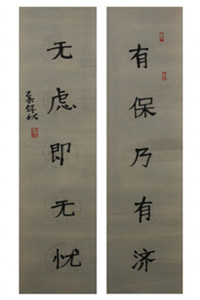 有保乃有济
无虑即无忧